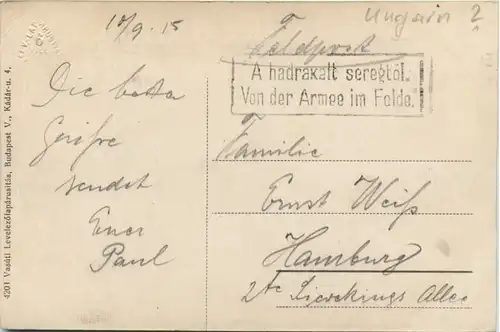 10/9.15
Die besten
Grüsse
sendet
Euer
Paul
Ungarn 2
Feldpost
A hadrakalt seregtől.
Von der Armee im Felde.
Familie
Ernst Weiß
Hamburg
2te Sievekings Allee
4201 Vasúti Levelezőlapárusitás, Budapest V., Kádár-u. 4.